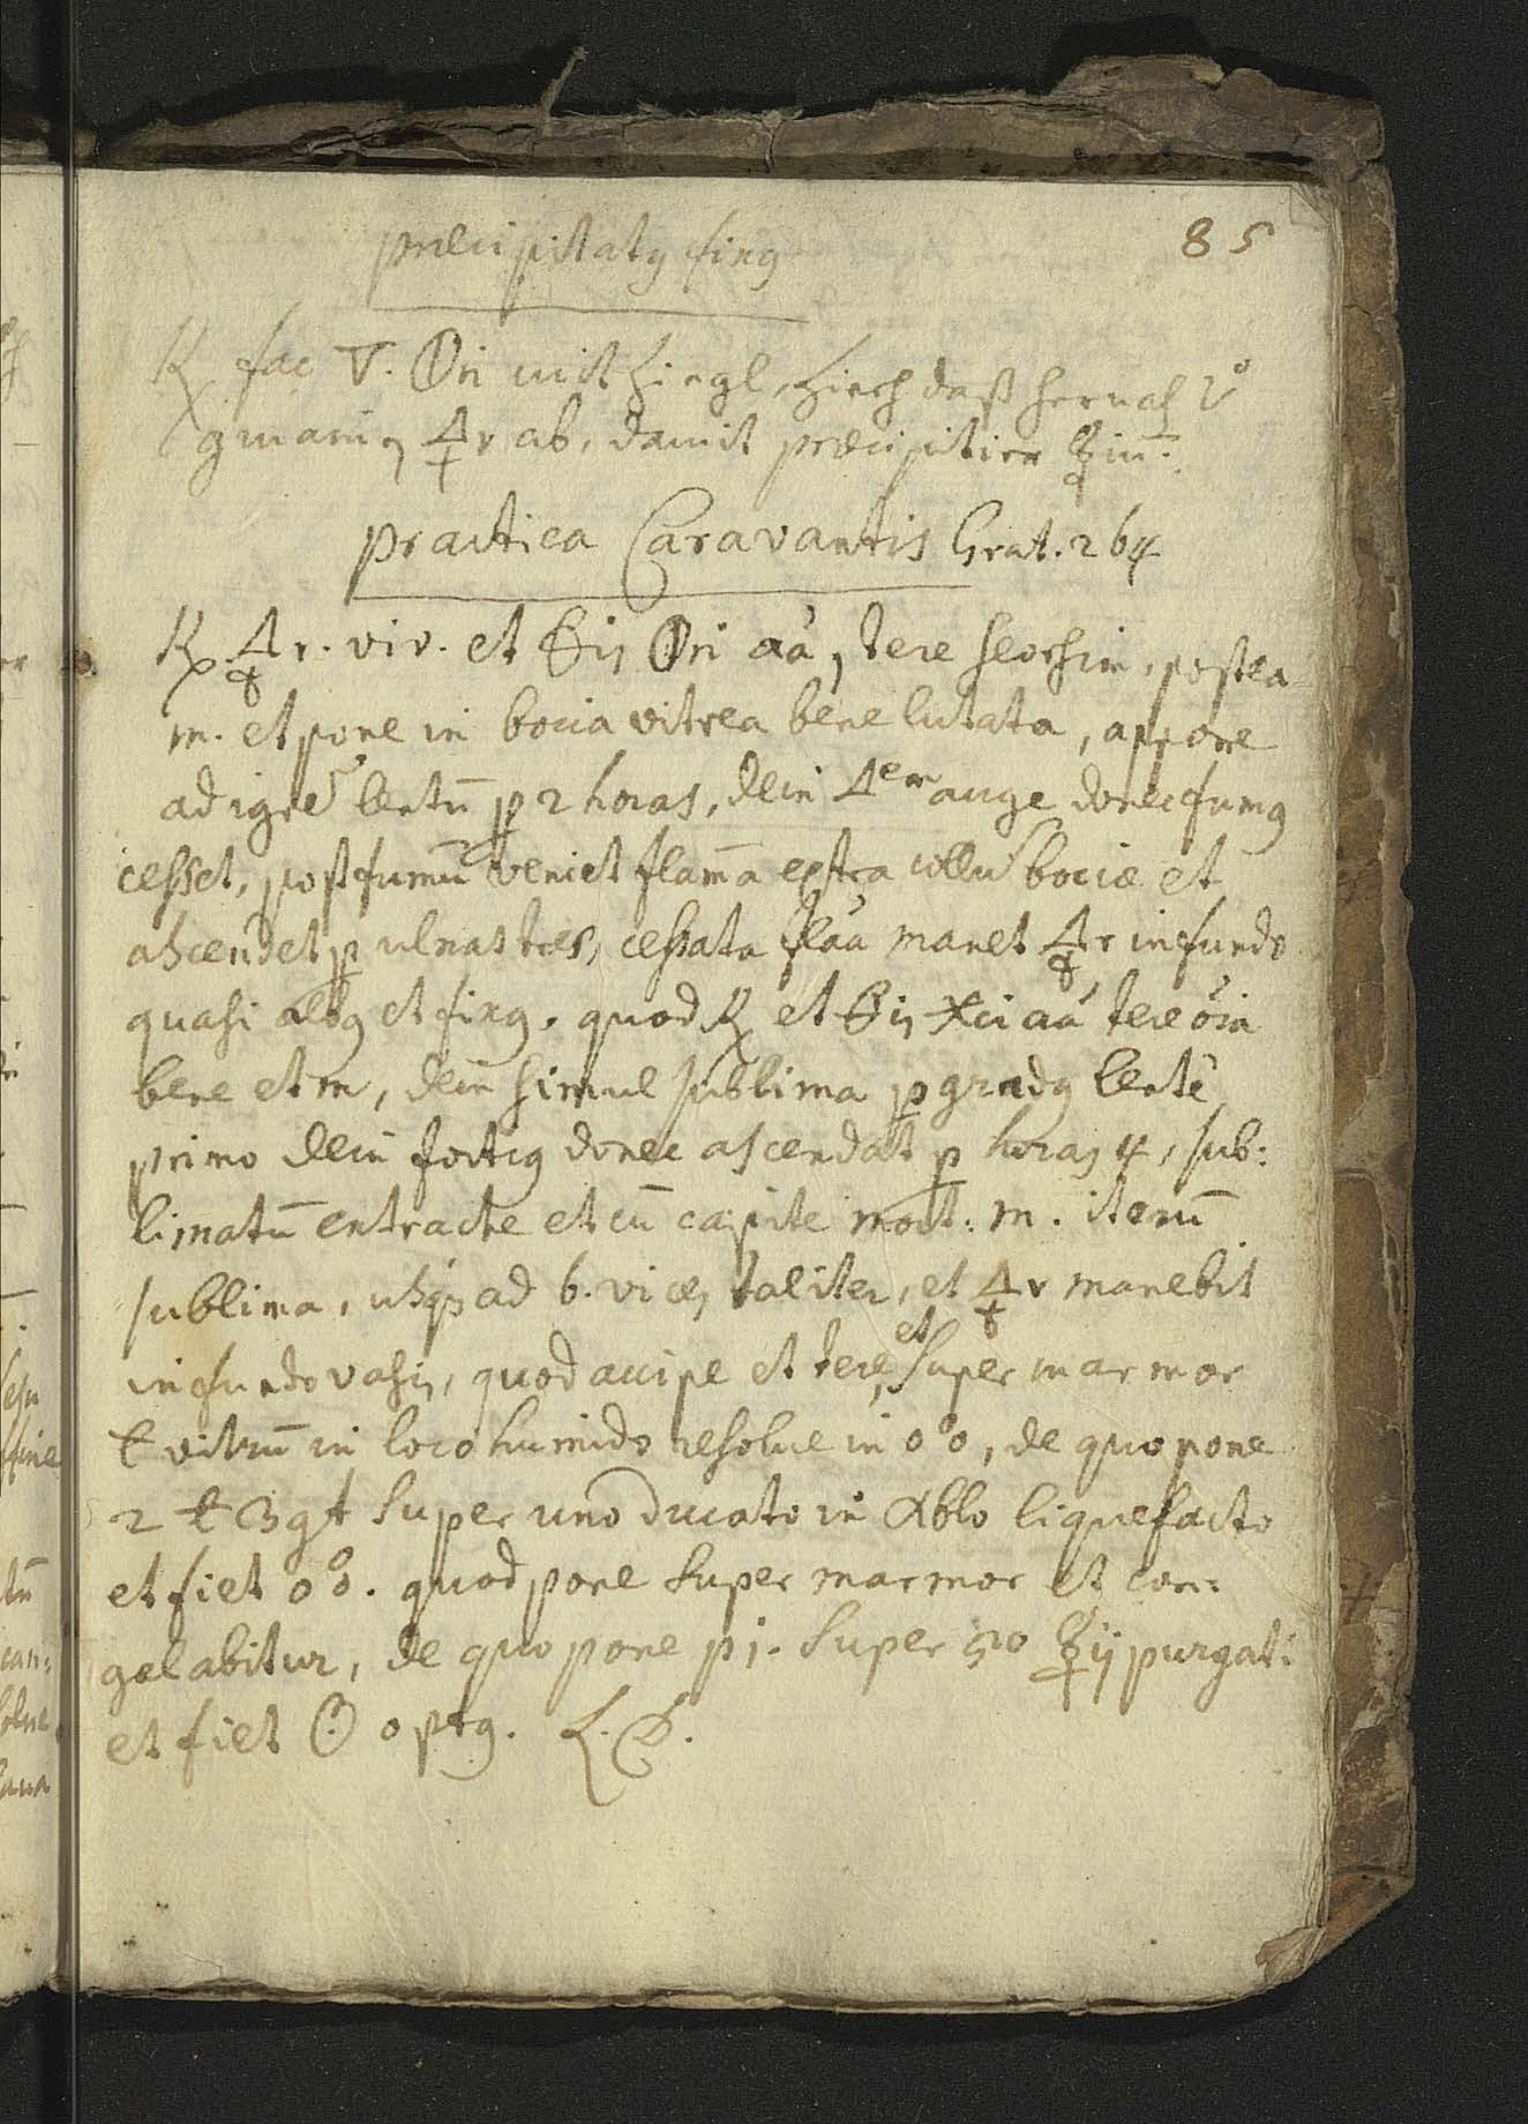 præcipitatg fixg
85
℞ fac ▽. 🜕ri mit Ziegl, Zieh daß hernach
🜍r ab, damit præcipitier ☿iū.
practica Caravantis Grat. 264
℞ 🜍r. viv. et 🜔is 🜕ri aá, tere seorsim, postea
m. et pone in bocia vitrea bene lutata, appone
ad igne᷒ lentū p 2 horas, dein △em auge donec fumg
cesset, post fumū veniet flam̄a extra collū bociæ et
ascendet p ulnas tres, cessata flaa manet 🜍r in fundo
quasi albg et fixg, quod ℞ et 🜔is 🜹ci aá tere óia
bene et m, dein simul sublima p gradg lente
primo dein fortig donec ascendat p horas 4, sub:
limatū extrache et cū capite mort: m. iterū
sublima, usqȝ ad 6. vices taliter, et 🜍r manebit
in fundo vasis, quod accipe et tere, et super marmor
t vitrū in loco humido resolve in o°o, de quo pone
2 t 3 gt super uno ducato in Xblo liquefacto
et fiet o°o. quod pone super marmor et con:
gelabitur, de quo pone p j. super 50 ☿ij purgati
et fiet ☉ optg. L. D.